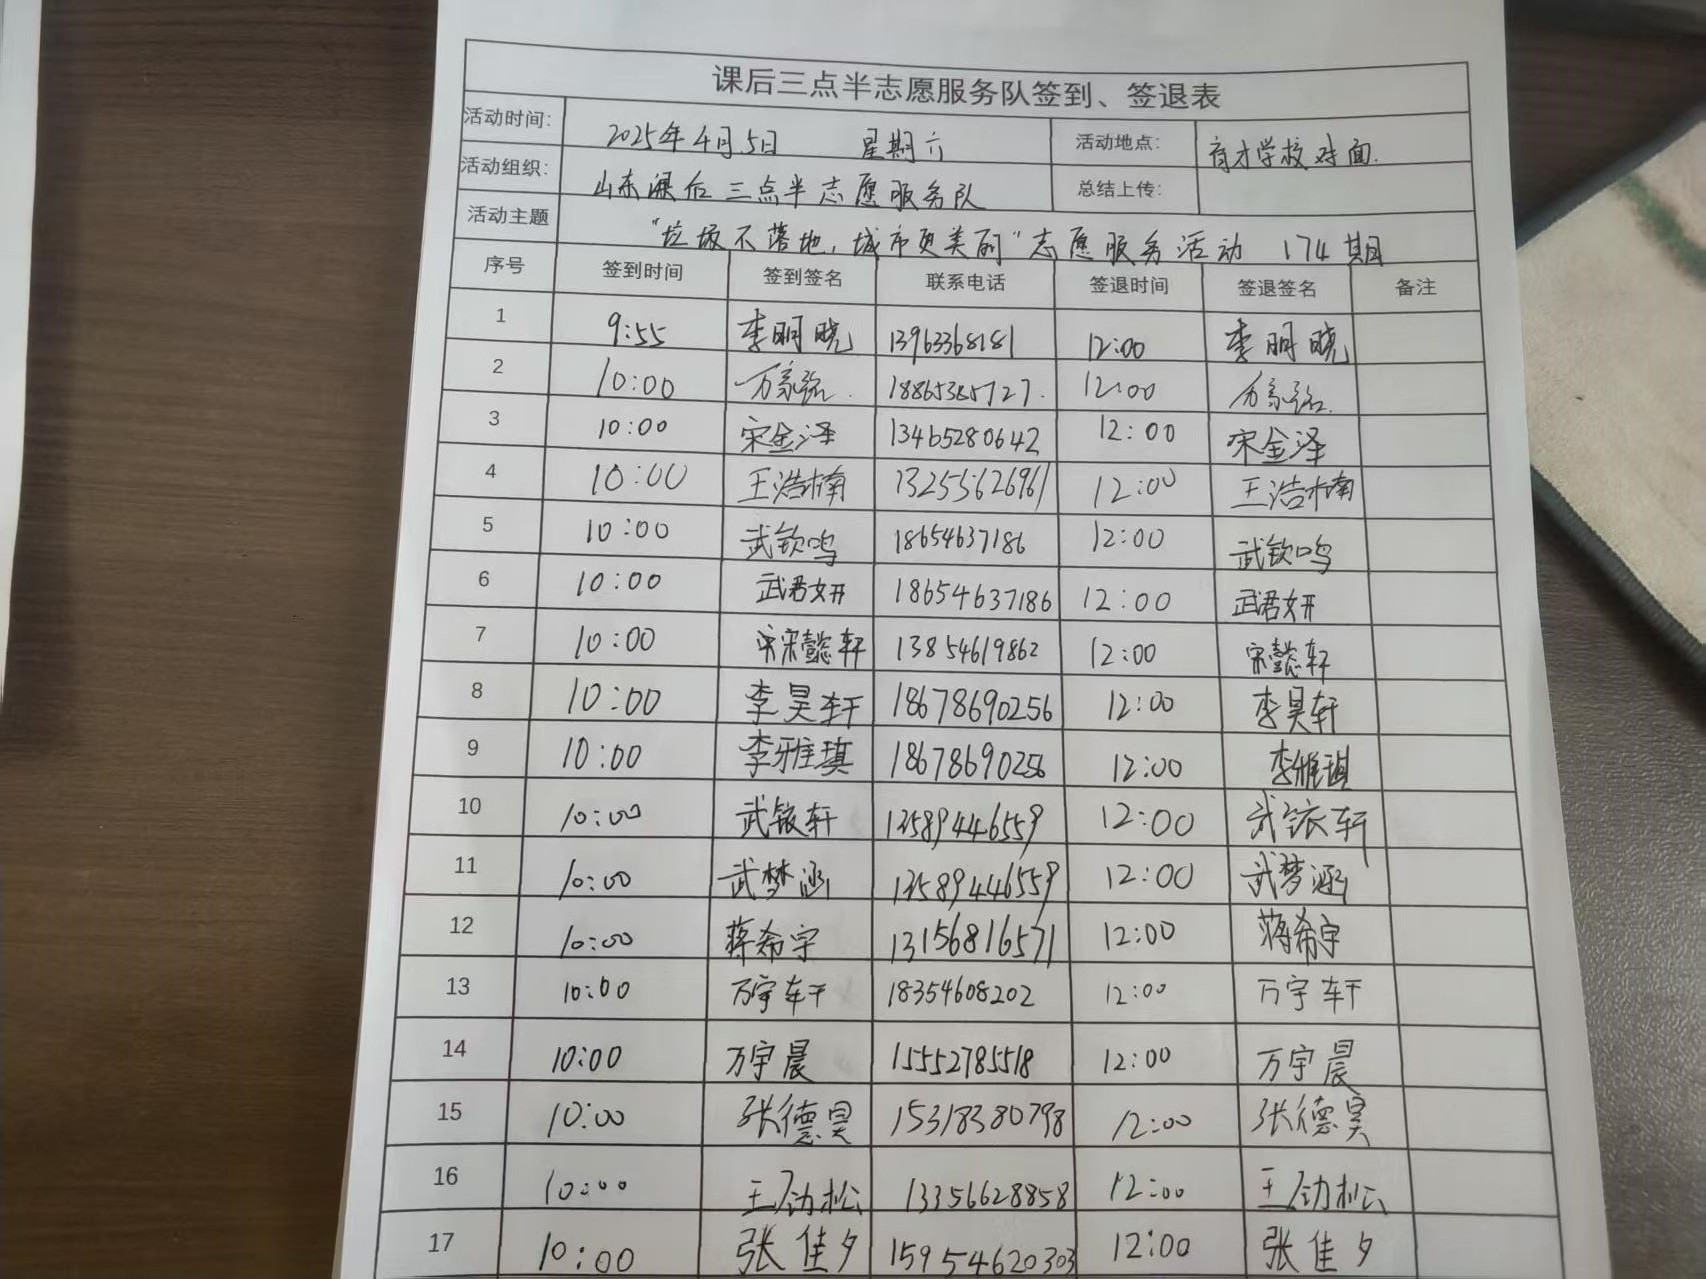 课后三点半志愿服务队签到、签退表
活动时间: 2025年4月5日 星期六 活动地点: 育才学校对面.
活动组织: 山东课后三点半志愿服务队 总结上传:
活动主题 "垃圾不落地,城市更美丽"志愿服务活动 174期
序号 签到时间 签到签名 联系电话 签退时间 签退签名 备注
1 9:55 李明晓 13963368181 12:00 李明晓
2 10:00 万家弘 18865385727. 12:00 万家弘
3 10:00 宋金泽 13465280642 12:00 宋金泽
4 10:00 王浩楠 13255626961 12:00 王浩楠
5 10:00 武钦鸣 18654637186 12:00 武钦鸣
6 10:00 武君妍 18654637186 12:00 武君妍
7 10:00 宋懿轩 13854619862 12:00 宋懿轩
8 10:00 李昊轩 18678690256 12:00 李昊轩
9 10:00 李雅琪 18678690256 12:00 李雅琪
10 10:00 武轩 13589446559 12:00 武轩
11 10:00 武梦涵 13589446559 12:00 武梦涵
12 10:00 蒋希宇 13156816571 12:00 蒋希宇
13 10:00 万宇轩 18354608202 12:00 万宇轩
14 10:00 万宇晨 15552785518 12:00 万宇晨
15 10:00 张德昊 15318380798 12:00 张德昊
16 10:00 王劲松 13356628858 12:00 王劲松
17 10:00 张佳夕 15954620303 12:00 张佳夕